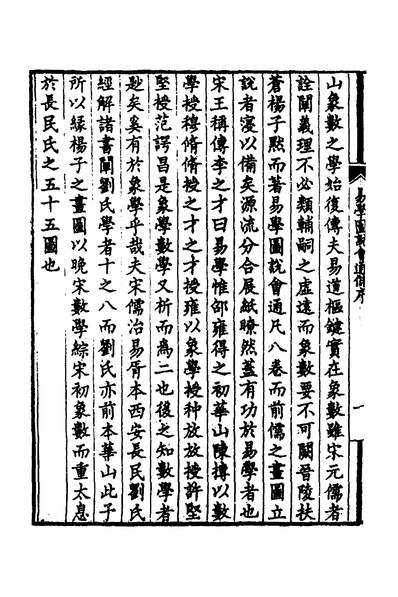 易學圖說會通儁序
一
山象數之學始復傳夫易道樞鍵實在象數雖宋元儒者
詮闡義理不必類輔嗣之虛遠而象數要不可闕晉陵扶
蒼楊子㸃而著易學圖說會通凡八卷而前儒之畫圖立
說者寖以備矣源流分合展紙暸然蓋有功於易學者也
宋王稱傳李之才曰易學惟邵雍得之初華山陳摶以數
學授穆脩脩授之才之才授雍以象學授种放放授許堅
堅授范諤昌是象學數學又析而為二也後之知數學者
尟矣奚有於象學乎哉夫宋儒治易胥本西安長民劉氏
經解諸書闡劉氏學者十之八而劉氏亦前本華山此子
所以綠楊子之畫圖以晚宋數學綜宋初象數而重太息
於長民氏之五十五圖也